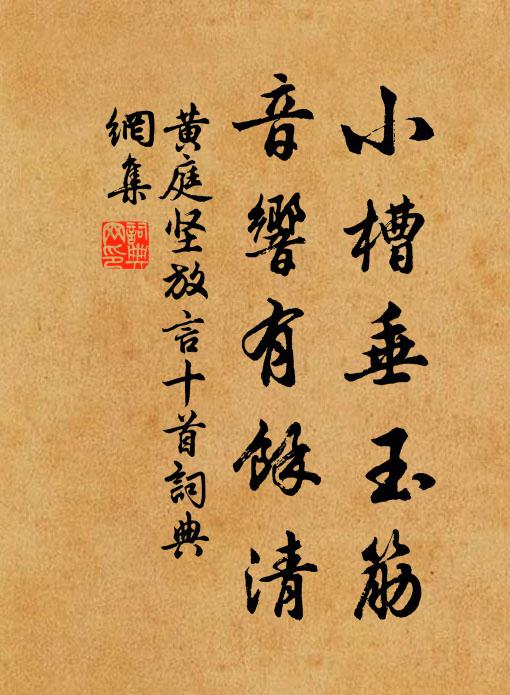 小槽垂玉筋
音響有餘清
黄庭坚放言十首詞典
網集
詞典網印